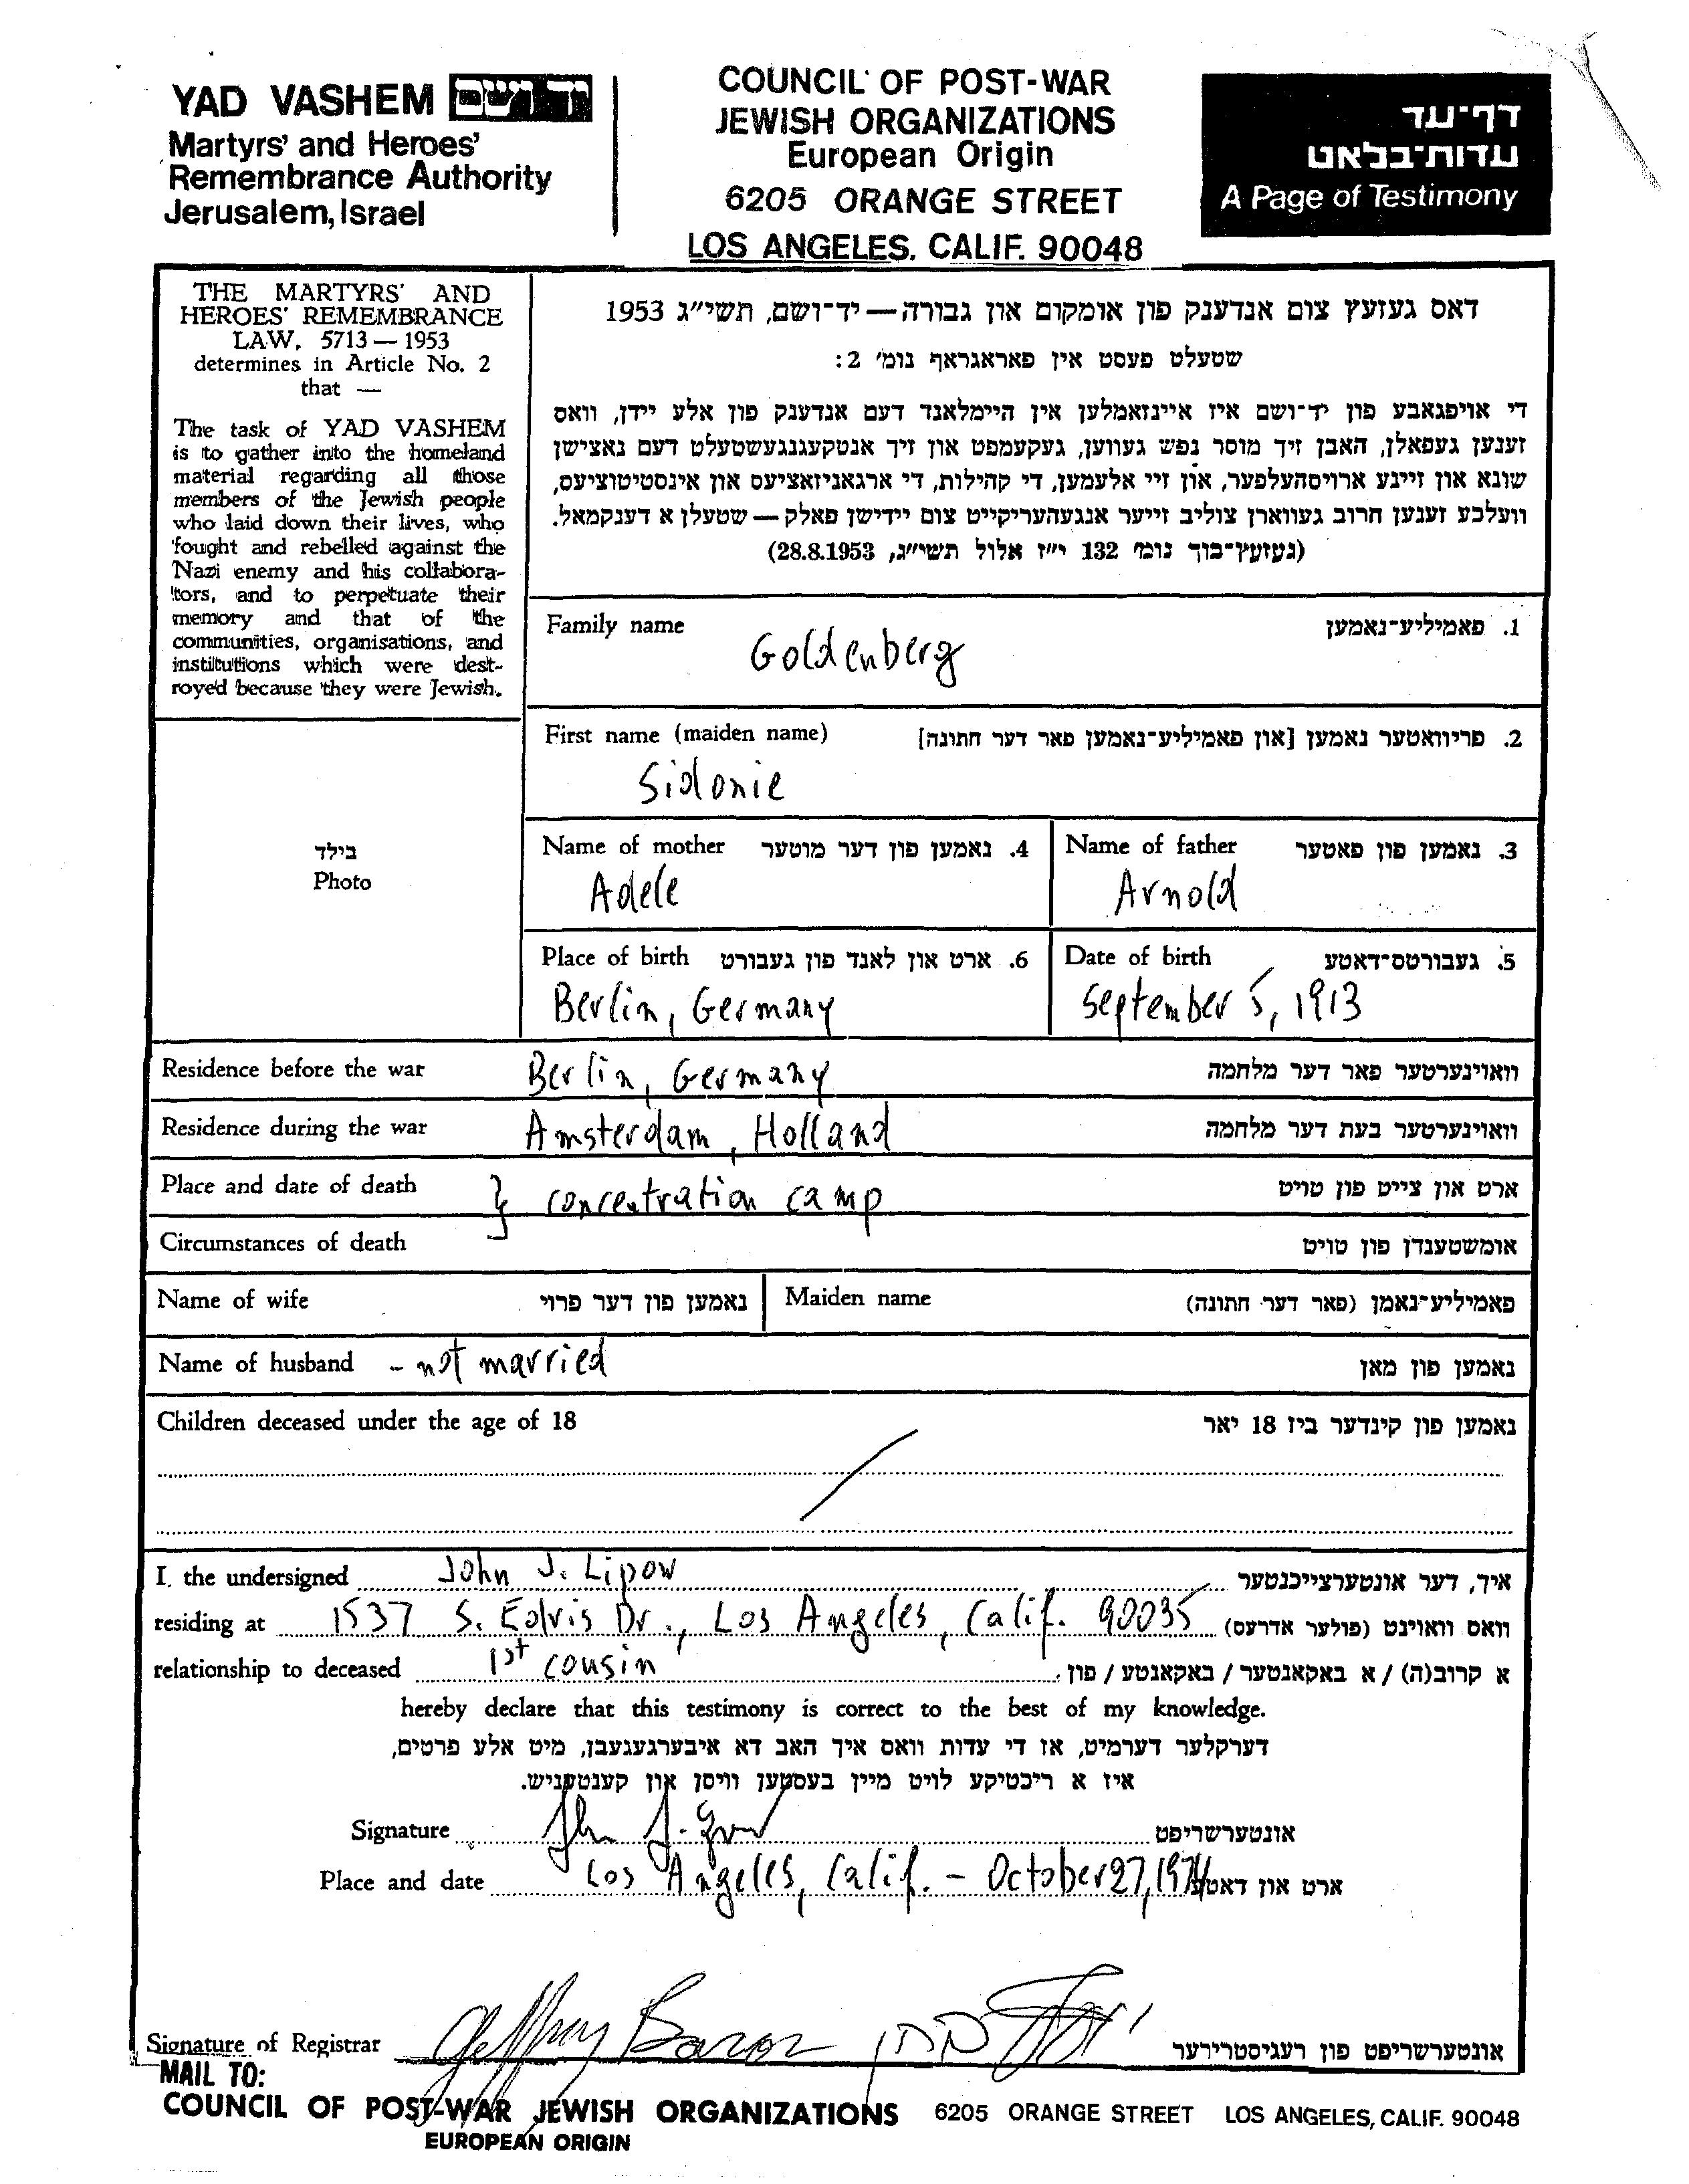 YAD VASHEM יד ושם
Martyrs' and Heroes'
Remembrance Authority
Jerusalem, Israel
COUNCIL OF POST-WAR
JEWISH ORGANIZATIONS
European Origin
6205 ORANGE STREET
LOS ANGELES, CALIF. 90048
דף־עד
עדות־בלאט
A Page of Testimony
THE MARTYRS' AND
HEROES' REMEMBRANCE
LAW, 5713 — 1953
determines in Article No. 2
that —
The task of YAD VASHEM
is to gather into the homeland
material regarding all those
members of the Jewish people
who laid down their lives, who
fought and rebelled against the
Nazi enemy and his collabora-
tors, and to perpetuate their
memory and that of the
communities, organisations, and
institutions which were dest-
royed because they were Jewish.
דאס געזעץ צום אנדענק פון אומקום און גבורה — יד־ושם, תשי״ג 1953
שטעלט פעסט אין פאראגראף נומ׳ 2:
די אויפגאבע פון יד־ושם איז איינזאמלען אין היימלאנד דעם אנדענק פון אלע יידן, וואס
זענען געפאלן, האבן זיך מוסר נפש געווען, געקעמפט און זיך אנטקעגנגעשטעלט דעם נאצישן
שונא און זיינע ארויסהעלפער, און זיי אלעמען, די קהילות, די ארגאניזאציעס און אינסטיטוציעס,
וועלכע זענען חרוב געווארן צוליב זייער אנגעהעריקייט צום יידישן פאלק — שטעלן א דענקמאל.
(געזעץ־בוך נומ׳ 132 י״ז אלול תשי״ג, 28.8.1953)
Family name 1. פאמיליע־נאמען
Goldenberg
First name (maiden name) 2. פריוואטער נאמען [און פאמיליע־נאמען פאר דער חתונה]
Sidonie
בילד
Photo
Name of mother 4. נאמען פון דער מוטער
Adele
Name of father 3. נאמען פון פאטער
Arnold
Place of birth 6. ארט און לאנד פון געבורט
Berlin, Germany
Date of birth 5. געבורטס־דאטע
September 5, 1913
Residence before the war Berlin, Germany וואוינערטער פאר דער מלחמה
Residence during the war Amsterdam, Holland וואוינערטער בעת דער מלחמה
Place and date of death } concentration camp ארט און צייט פון טויט
Circumstances of death אומשטענדן פון טויט
Name of wife נאמען פון דער פרוי Maiden name פאמיליע־נאמן (פאר דער חתונה)
Name of husband - not married נאמען פון מאן
Children deceased under the age of 18 נאמען פון קינדער ביז 18 יאר
I, the undersigned John J. Lipow איך, דער אונטערצייכנטער
residing at 1537 S. Edris Dr., Los Angeles, Calif. 90035 וואס וואוינט (פולער אדרעס)
relationship to deceased 1st cousin א קרוב(ה) / א באקאנטער / באקאנטע / פון
hereby declare that this testimony is correct to the best of my knowledge.
דערקלער דערמיט, אז די עדות וואס איך האב דא איבערגעגעבן, מיט אלע פרטים,
איז א ריכטיקע לויט מיין בעסטען וויסן און קענטעניש.
Signature אונטערשריפט
Place and date Los Angeles, Calif. - October 27, 1974 ארט און דאטע
Signature of Registrar Jeffrey Baron אונטערשריפט פון רעגיסטרירער
MAIL TO:
COUNCIL OF POST-WAR JEWISH ORGANIZATIONS 6205 ORANGE STREET LOS ANGELES, CALIF. 90048
EUROPEAN ORIGIN